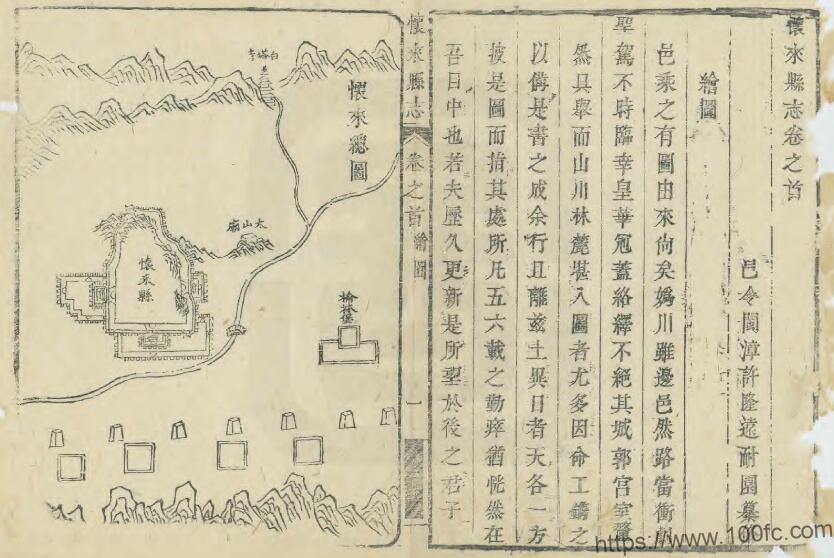 懷來縣志卷之首
邑令閩漳許隆遠耐園纂
繪圖
邑乘之有圖由來尚矣媯川雖邊邑然路當衝
聖駕不時臨幸皇華冠蓋絡繹不絕其城郭宮室
然具舉而山川林麓堪入圖者尤多因命工鐫之
以備是書之成余行且離兹土異日者天各一方
披是圖而指其處所凡五六載之勤瘁猶恍然在
吾目中也若夫歷久更新是所望於後之君子
懷來縣志
卷之首
繪圖
一
懷來總圖
白塔寺
太山廟
懷來縣
榆林堡
https://www.100fc.com